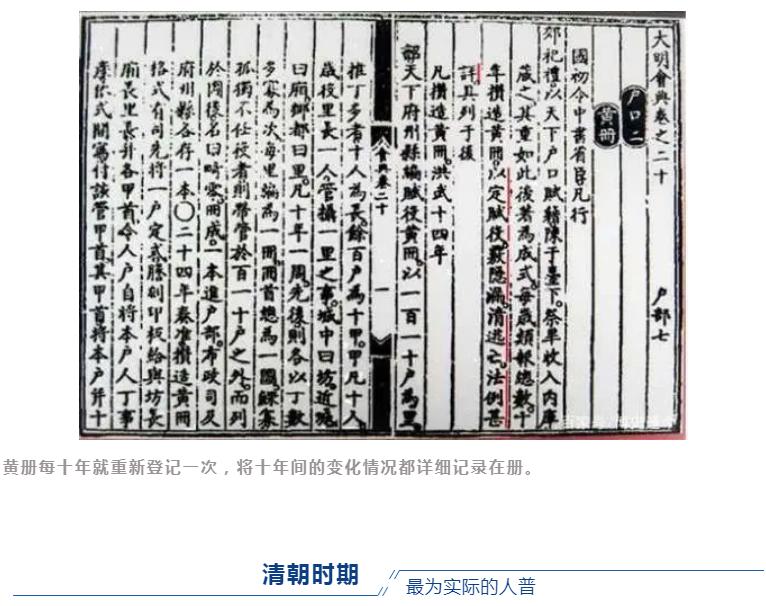 大明會典卷之二十 户部七
户口二
黃冊
國初令中書省臣凡行
郊祀禮以天下户口賦籍陳于臺下。祭畢收入内庫
藏之。其重如此後著為成式。每歲類報總數。十
年攢造黃冊。以定賦役。覈隱漏。清逃亡。法例甚
詳具列于後
凡攢造黃冊。洪武十四年
詔天下府州縣編賦役黃冊。以一百一十户為里。
會典卷二十 一
推丁多者十人為長。餘百户為十甲。甲凡十人。
歲役里長一人。管攝一里之事。城中曰坊。近城
曰廂。鄉都曰里。凡十年一周。先後則各以丁數
多寡為次。每里編為一冊。冊首總為一圖。鰥寡
孤獨不任役者則帶管於百一十户之外。而列
於圖後名曰畸零。冊成。一本進户部。布政司及
府州縣各存一本〇二十四年奏准攢造黃冊
格式有司先將一户定式謄刻印板給與坊長
廂長里長并各甲首。令人户自將本户人丁事
產依式開寫付該管甲首。其甲首將本户并十
黄册每十年就重新登记一次，将十年间的变化情况都详细记录在册。
清朝时期
最为实际的人普